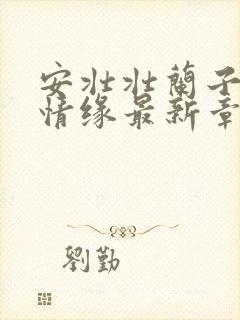 安壮壮蘭子
情缘最新章
劉勤